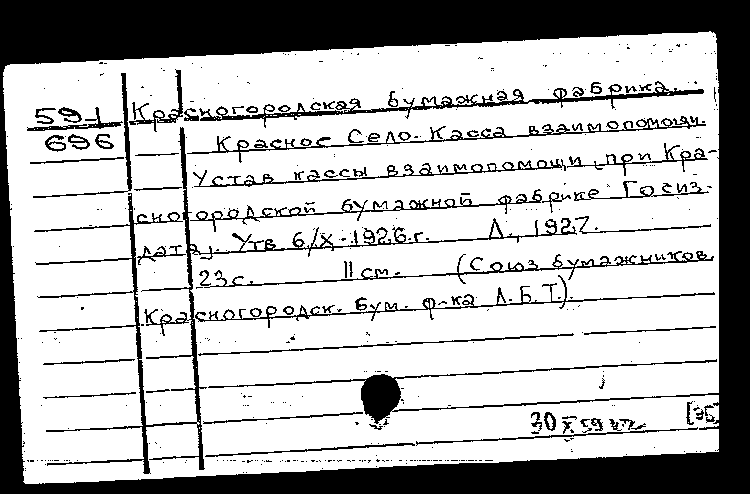 59-1 Красногородская бумажная фабрика.
696 Красное Село. Касса взаимопомощи.
Устав кассы взаимопомощи при Кра-
сногородской бумажной фабрике Госиз-
дата. Утв 6/X-1926.г. Л., 1927.
23с. 11 см. (Союз бумажников.
Красногородск. бум. ф-ка Л.Б.Т.).
30 X 59